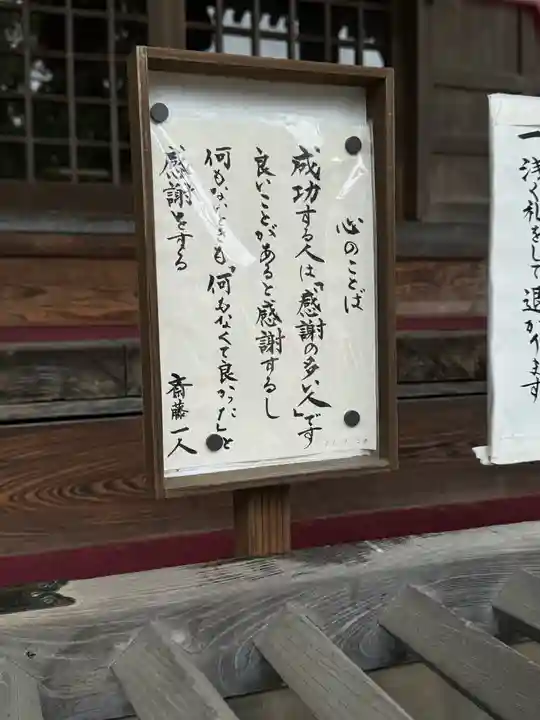 心のことば
成功する人は「感謝の多い人」です
良いことがあると感謝するし
何もないときも「何もなくて良かった」と
感謝をする
斎藤一人
一 浅く礼をして退がります